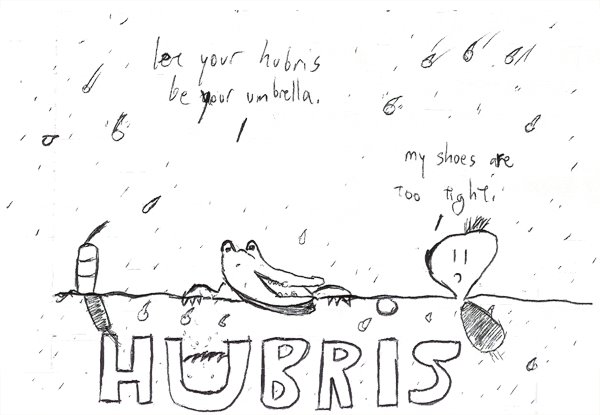 let your hubris
be your umbrella.
my shoes are
too tight.
HUBRIS